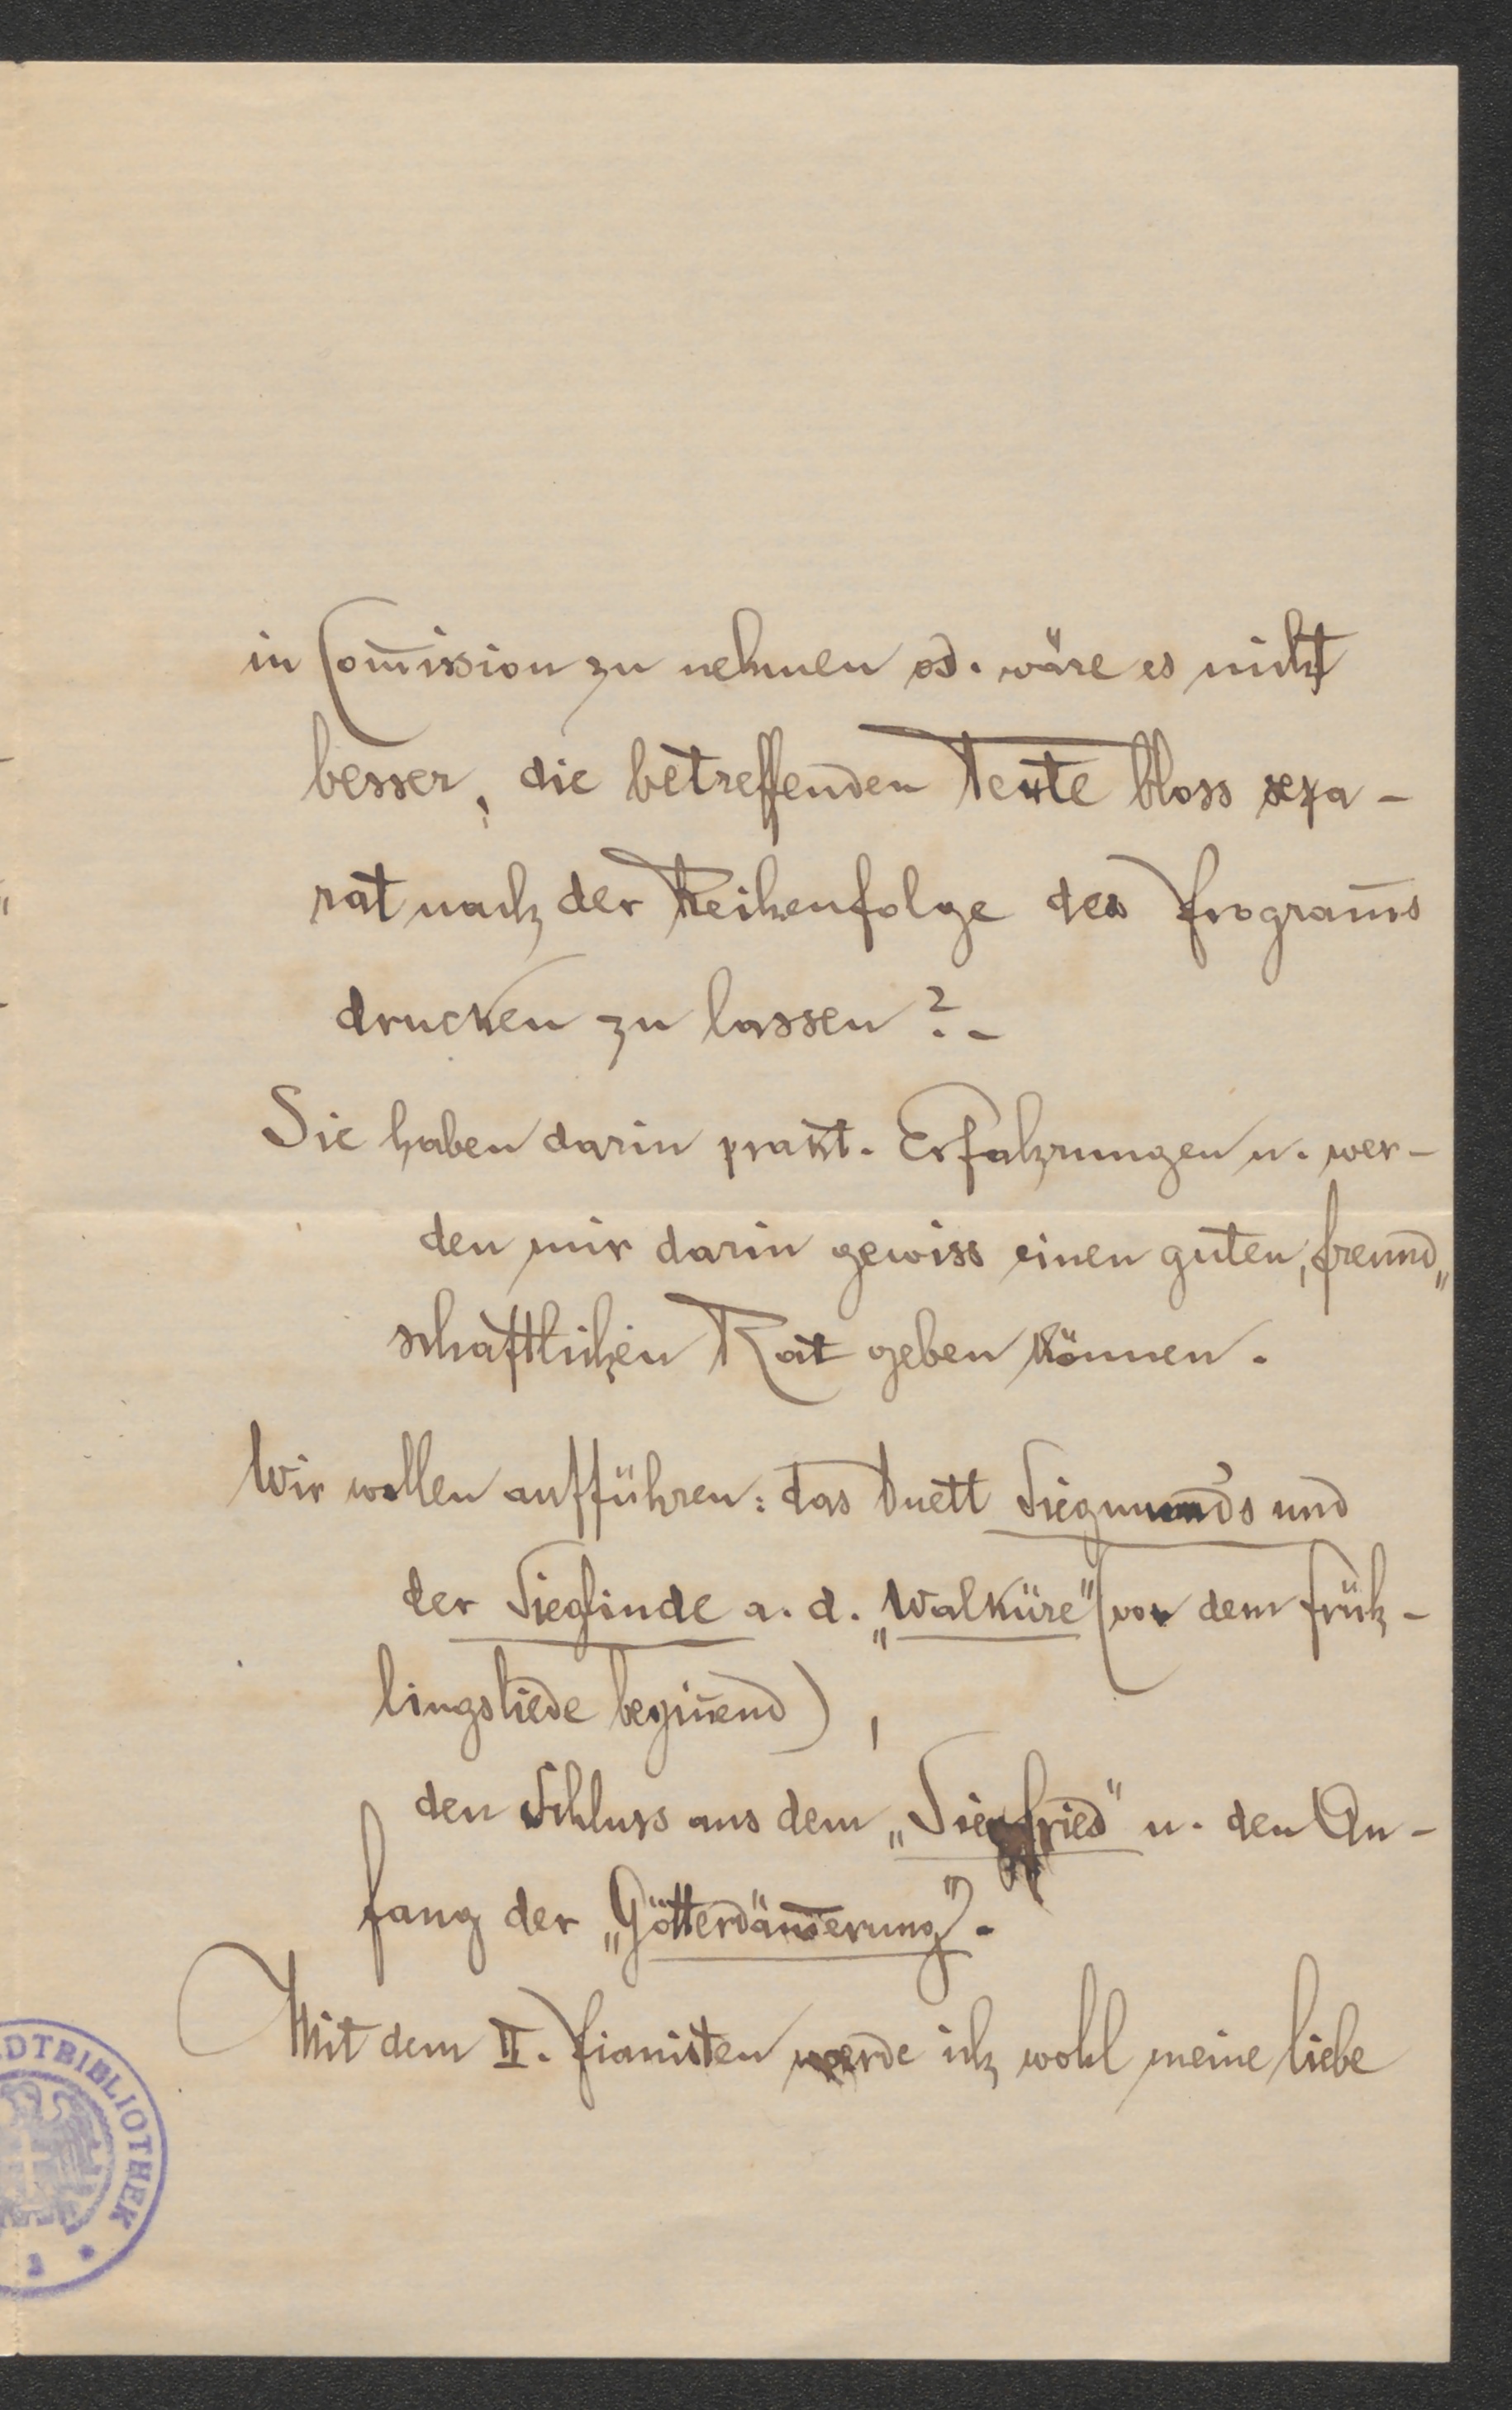 in Com̅ission zu nehmen od. wäre es nicht
besser, die betreffenden Texte bloss sepa-
rat nach der Reihenfolge des Program̅s
drucken zu lassen?-
Sie haben darin prakt. Erfahrungen u. wer-
den mir darin gewiss einen guten, freund„
schaftlichen Rat geben können.
Wir wollen aufführen: das Duett Siegmund's und
der Sieglinde a. d. „Walküre" (vor dem Früh-
lingsliede begin̅end),
den Schluss aus dem „Siegfried" u. den An-
fang der „Götterdäm̅erung".
Mit dem II. Pianisten werde ich wohl meine liebe
DTBIBLIOTHEK